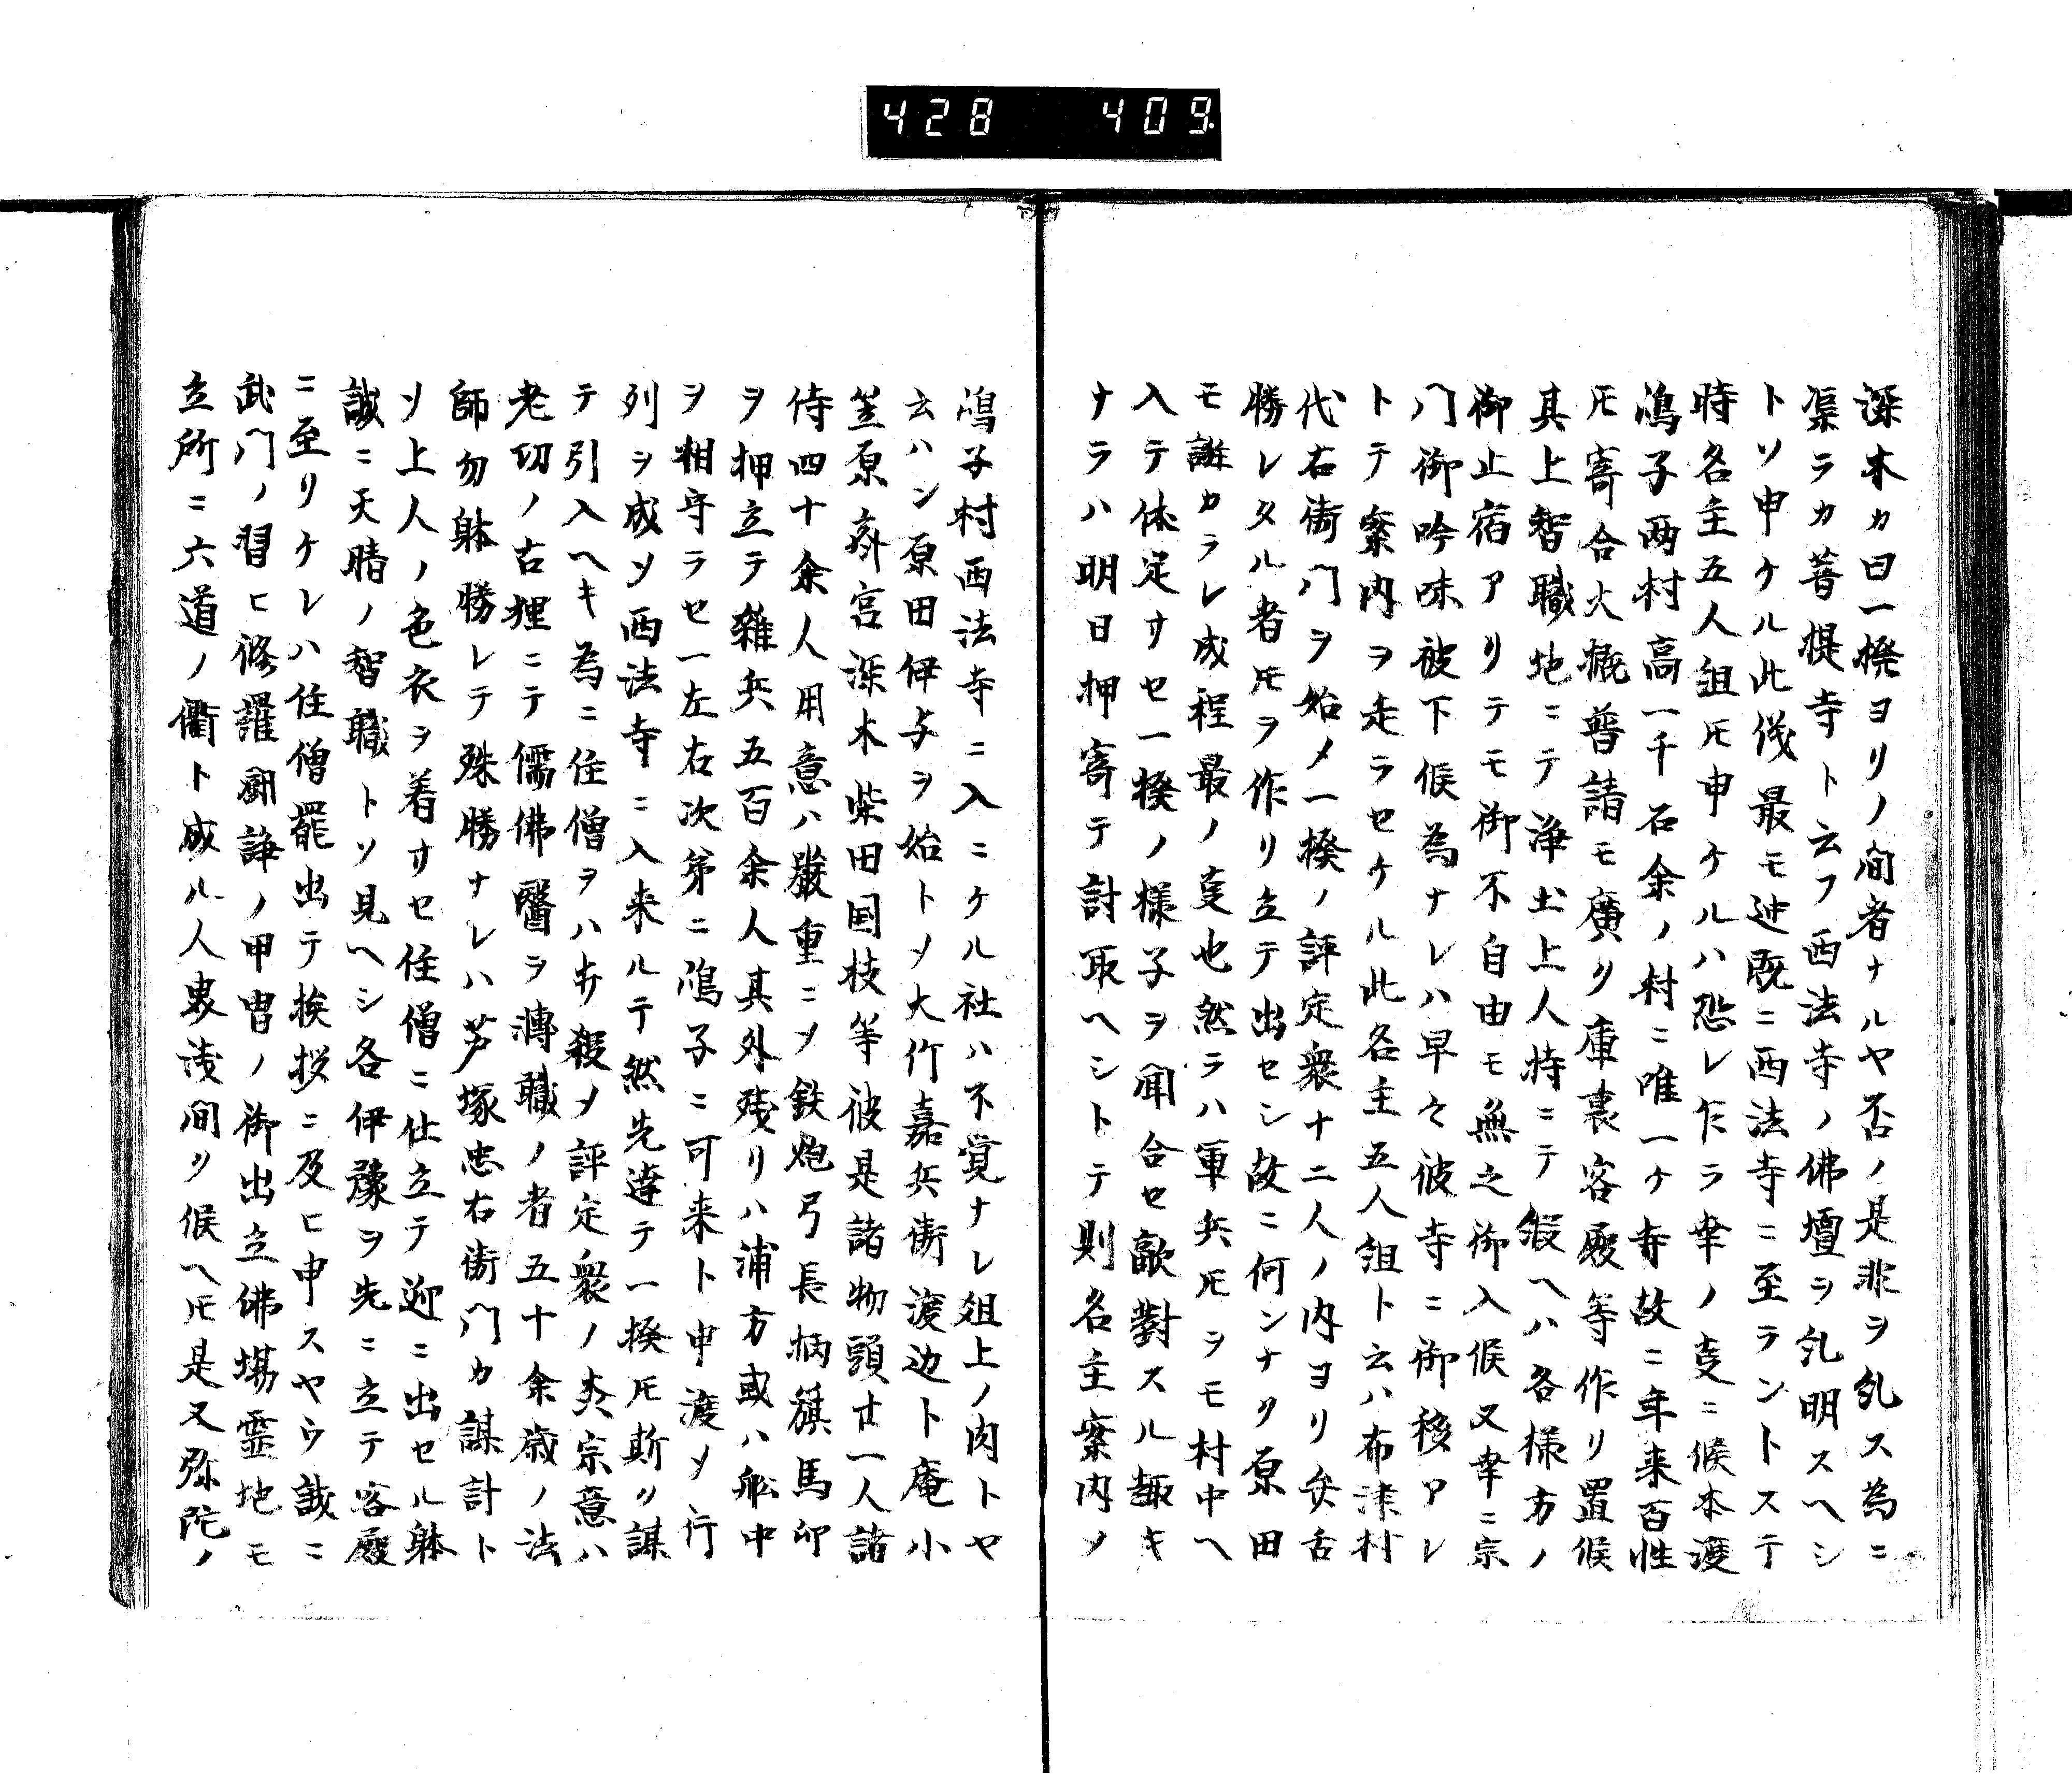 428 409
深木カ曰一揆ヨリノ間者ナルヤ否ノ是非ヲ糺ス為ニ
渠ラカ菩提寺ト云フ西法寺ノ佛壇ヲ糺明スヘシ
トソ申ケル此儀最モ迚既ニ西法寺ニ至ラントステ
時名主五人組𪜈申ケルハ恐レ乍ラ幸ノ㕝ニ候本渡
鴻子両村高一千石余ノ村ニ唯一ケ寺故ニ年来百性
𪜈寄合大概普請モ廣ク庫裏客殿等作リ置候
其上智職地ニテ浄土上人持ニテ候ヘハ各様方ノ
御止宿アリテモ御不自由モ無之御入候又幸ニ宗
門御吟味被下候為ナレハ早々彼寺ニ御移アレ
トテ案内ヲ走ラセケル此名主五人組ト云ハ布津村
代右衛門ヲ始メ一揆ノ評定衆十二人ノ内ヨリ弁舌
勝レタル者𪜈ヲ作リ立テ出セシ故ニ何ンナク原田
モ謀カラレ成程最ノ㕝也然ラハ軍兵𪜈ヲモ村中ヘ
入テ休足サセ一揆ノ様子ヲ聞合セ敵對スル趣キ
ナラハ明日押寄テ討取ヘシトテ則名主案内メ
鴻子村西法寺ニ入ニケル社ハ不覚ナレ俎上ノ肉トヤ
云ハン原田伊与ヲ始トメ大竹嘉兵衛渡辺ト庵小
笠原斎宮深木柴田国枝等彼是諸物頭廿一人諸
侍四十余人用意ハ嚴重ニメ鉄炮弓長柄簱馬印
ヲ押立テ雜兵五百余人其外残リハ浦方或ハ舩中
ヲ相守ラセ一左右次第ニ鴻子ニ可来ト申渡メ行
列ヲ成メ西法寺ニ入来ルテ然先達テ一揆𪜈斯ク謀
テ引入ヘキ為ニ住僧ヲハ弁殺メ評定衆ノ夾宗意ハ
老功ノ古狸ニテ儒佛醫ヲ漙職ノ者五十余歳ノ法
師勿躰勝レテ殊勝ナレハ芦塚忠右衛門カ謀計ト
ソ上人ノ色衣ヲ着サセ住僧ニ仕立テ迎ニ出セル躰
誠ニ天晴ノ智職トソ見ヘシ各伊豫ヲ先ニ立テ客殿
ニ至リケレハ住僧罷出テ挨拶ニ及ヒ申スヤウ誠ニ
武門ノ習ヒ修羅鬪諍ノ甲冑ノ御出立佛場霊地モ
立所ニ六道ノ衢ト成ル人㒵浅間リ候ヘ𪜈是又弥陀ノ